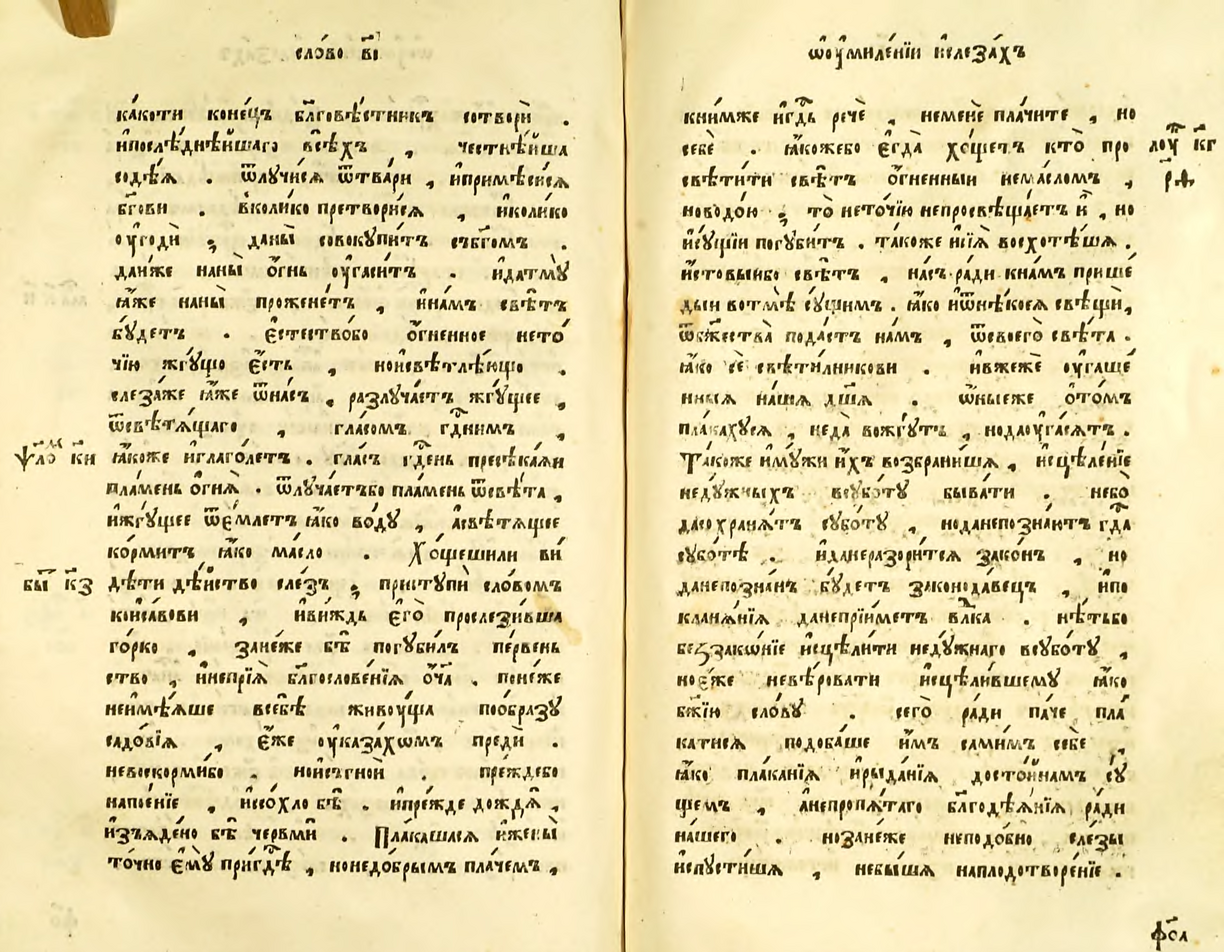 сло́во в҃і
ка́коти коне́цъ бл҃гове́стникъ сотвори̂ .
ипослѣ́днѣйшаго всѣ́хъ , честнѣ́йша
содѣ́ѧ . ѿлучи́сѧ ѿтва́ри , ипримѣси́сѧ
бг҃ови . вколи́ко претвори́сѧ , иколи́ко
оугоди̂ , даны̀ совоку́питъ събг҃омъ .
да́иже наны̀ о҆́гнь оугаси́тъ . идатму̀
ꙗ҆́же наны̀ проженет́ъ , ина́мъ свѣ́тъ
бу́детъ . є҆стество́бо о҆́гненное нето́
чїю жгу́що є҆́сть , ноисвѣтлѣ́ющо .
слеза́же ꙗ҆́же ѿна́съ , разлуча́етъ жгу́щее ,
ѿсвѣтѧ́щаго , гла́сомъ гд҃нимъ ,
ѱло́ к҃и
ꙗ҆́коже иглаго́летъ . гла́съ гд҃ень пресѣка́ѧи
пла́мень о҆гнѧ̀ . ѿлуча́етъбо пла́мень ѿсвѣ́та ,
ижгу́щее ѿе́млетъ ꙗ҆́ко во́ду , асвѣтѧ́щее
ко́рмитъ ꙗ҆́ко ма́сло . Хо́щешили ви́
бы҃ к҃з
дѣти дѣ́йство сле́зъ , приступи̂ сло́вомъ
коиса́вови , иви́ждь є҆го̀ прослези́вша
го́рко , зане́же бѣ̀ погуби́лъ пе́рвень
ство , инепрїѧ̀ бл҃гослове́нїѧ о҆́ча . поне́же
неимѣ́ѧше всебѣ̀ живу́ща поо́бразу
садо́вїѧ , є҆́же оуказа́хомъ преди̂ .
невоскорми́бо . ноисъгной . пре́ждебо
напое́нїе , иссо́хло бѣ̀ . ипре́жде дождѧ̀ ,
изъѧ́дено бѣ̀ червми̂ . Пла́кашасѧ ижены̀
то́чно є҆му̀ пригд҃ѣ , нонедо́брымъ пла́чемъ ,
ѡоумиле́нїи ислеза́хъ
кни́мже игд҃ь рече̂ , неменѐ пла́чите , но
себѐ . ꙗ҆́коже́бо є҆гда̀ хо́щетъ кто̀ про
лоу҃ к҃г
р҃д
свѣти́ти свѣ́тъ о҆́гненныи нема́сломъ ,
новодо́ю , то̀ нето́чїю непросвѣща́етъ и̂ , но
ису́щїи погуби́тъ . та́коже исїѧ̀ восхотѣ́шѧ .
и҆́стовыибо свѣ́тъ , на́съ ра́ди кна́мъ прише́
дыи вотмѣ̀ су́щимъ . ꙗ҆́ко иѿнѣ́коеѧ свѣщи̂ ,
ѿбж҃ества̀ пода́стъ на́мъ , ѿсвоего̀ свѣ́та .
ꙗ҆́ко се̂ свѣти́лникови . ивже́же оугаше́
ныѧ на́шѧ дш҃ѧ . ѡны́еже о҆то́мъ
пла́кахусѧ , неда̀ вожгу́тъ , нодаоугасѧ́тъ .
Та́коже иму́жи и҆́хъ возбрани́шѧ , исцѣле́нїе
неду́жныхъ всубо́ту быва́ти . небо̀
дасохранѧ́тъ субо́ту , ноданепозна́ютъ гд҃а
субо́тѣ . иданеразори́тсѧ зако́нъ , но
данепозна́нъ бу́детъ законода́вецъ , ипо
кланѧ́нїѧ данепрїи́метъ вл҃ка . нѣ́тьбо
беззако́нїе исцѣли́ти неду́жнаго всубо́ту ,
ноє́же невѣ́ровати исцѣли́вшему ꙗ҆́ко
бж҃їю сло́ву . сего̀ ра́ди па́че пла́
катисѧ подоба́ше и҆́мъ сами́мъ себѐ ,
ꙗ҆́ко пла́канїѧ ирыда́нїѧ досто́йнамъ су́
щемъ , анепропѧ́таго бл҃годѣѧ́нїѧ ра́ди
на́шего . нозане́же неподо́бно сле́зы
испусти́шѧ , небы́шѧ наплодотворе́нїе .
фо҃а